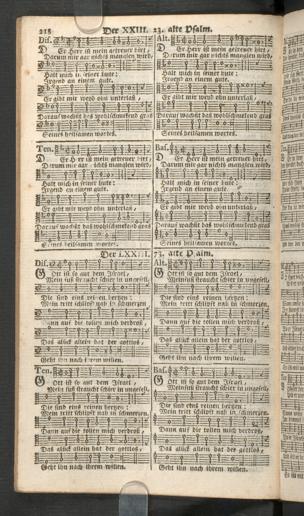 218 Der XXIII. 23. alte Psalm.
Dis.
Er Herr ist mein getreuer hirt,
Darum mir gar nichts manglen wird,
Halt mich in seiner hute:
Irgend an einem gute.
Er gibt mir weyd ohn unterlaß,
Darauf wachst das wohlschmeckend graß
Seines heilsamen wortes.
Alt.
Er Herr ist mein getreuer hirt,
Darum mir gar nichts manglen wird,
Halt mich in seiner hute:
Irgend an einem gute.
Er gibt mir weyd ohn unterlaß,
Darauf wachst das wohlschmeckend graß
Seines heilsamen wortes.
Ten.
Er Herr ist mein getreuer hirt,
Darum mir gar nichts manglen wird,
Halt mich in seiner hute:
Irgend an einem gute.
Er gibt mir weyd ohn unterlaß,
Darauf wachst das wohlschmeckend graß
Seines heilsamen wortes.
Bas.
Er Herr ist mein getreuer hirt,
Darum mir gar nichts manglen wird,
Halt mich in seiner hute:
Irgend an einem gute.
Er gibt mir weyd ohn unterlaß,
Darauf wachst das wohlschmeckend graß
Seines heilsamen wortes.
Der LXXIII. 73. alte Psalm.
Dis.
Gott ist so gut dem Israel,
Mein fuß straucht schier in ungefell,
Die sind eins reinen herzen:
Mein tritt schlipft nah in schmerzen.
Dann auf die tollen mich verdroß,
Das gluck allein hat der gottlos,
Geht ihn nach ihrem willen.
Alt.
Gott ist so gut dem Israel,
Mein fuß straucht schier in ungefell,
Die sind eins reinen herzen:
Mein tritt schlipft nah in schmerzen.
Dann auf die tollen mich verdroß,
Das gluck allein hat der gottlos,
Geht ihn nach ihrem willen.
Ten.
Gott ist so gut dem Israel,
Mein fuß straucht schier in ungefell,
Die sind eins reinen herzen:
Mein tritt schlipft nah in schmerzen.
Dann auf die tollen mich verdroß,
Das gluck allein hat der gottlos,
Geht ihn nach ihrem willen.
Bas.
Gott ist so gut dem Israel,
Mein fuß straucht schier in ungefell,
Die sind eins reinen herzen:
Mein tritt schlipft nah in schmerzen.
Dann auf die tollen mich verdroß,
Das gluck allein hat der gottlos,
Geht ihn nach ihrem willen.